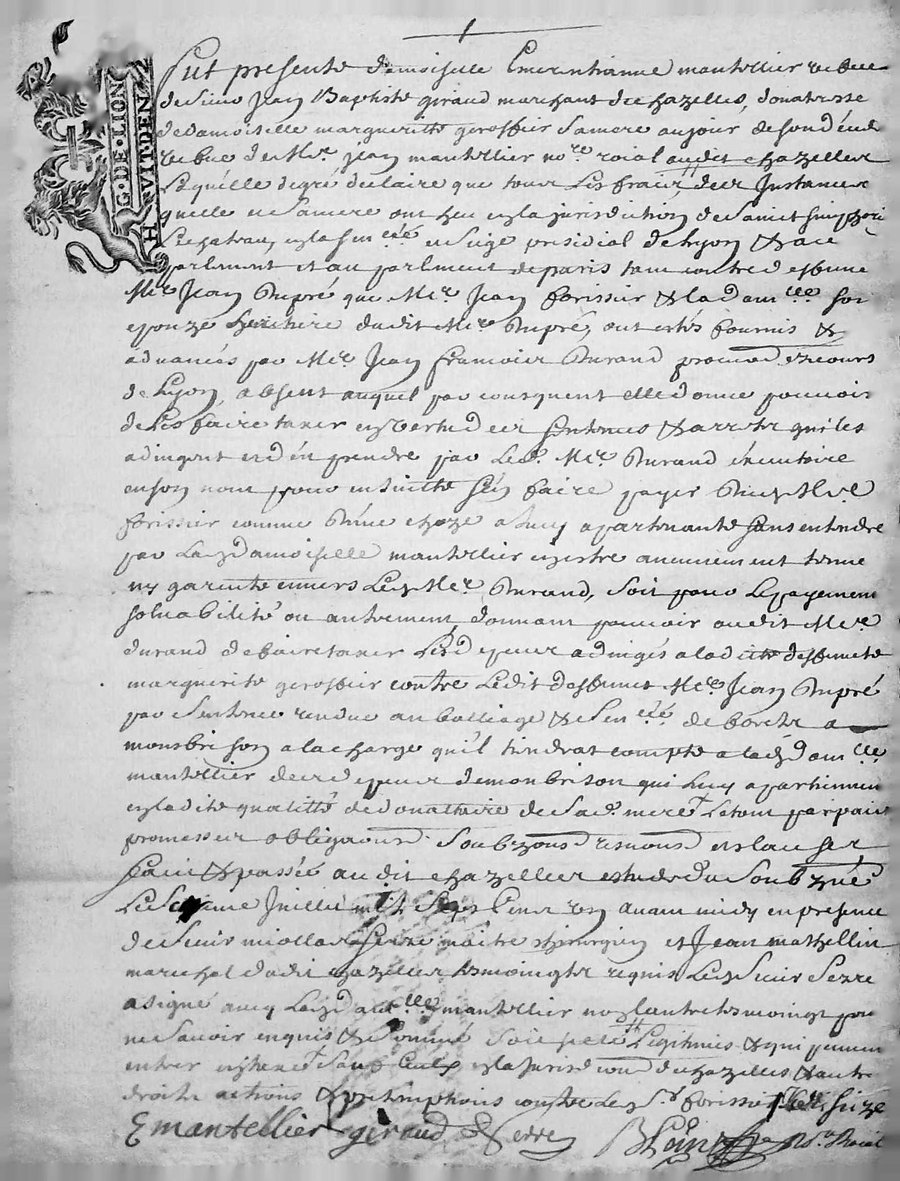 G. DE LION
HUIT DEN
Fut presente damoiselle Emerentianne mantellier vefve
de Sieur Jean Baptiste giraud marchant de chazelles, donatresse
de damoiselle margueritte gerossier sa mere au jour de son décéd
vefve de Me. jean mantellier nore. roial audit chazelles
Laquelle de gré déclaire que tous Les fraix des Instances
quelle et Sa mere ont heu en la jurisdiction de Sainct
Le chateau, en la senéée et siège presidial de Lyon & au
parlement et au parlment de paris tant contre deffunct
Me. Jean Dupré que Me. Jean forissier & la damlle. son
epouze heritiere dudit Me. Dupré, ont estés fournis &
advancés par Me. Jean francois Durand procureur ez cours
de Lyon, absent auquel par consequent elle donne pouvoir
de Les faire taxer en vertu des sentences & arrets qui les
adjugent et d'en prendre par Led. Me. Durand éxecutoire
en son nom pour en suitte s'en faire payer Dud. Me.
forissier comme D'une choze a Luy apartenante sans entendre
par Lad. damoiselle mantellier en estre aucunement tenue
ny garente envers Led. Me. Durand, soit pour Le payement
solvabilité ou autrement, donnant pouvoir audit Me.
durand de faire taxer Les depens adjugés a ladite deffuncte
marguerite gerossier contre Ledit deffunct Me. Jean Dupré
par sentence rendue au balliage & senéée de forest a
montbrison a la charge qu'il tiendrat compte a lad. damlle.
mantellier des depens de monbrison qui Luy apartiennent
en ladite qualitté de donataire de Sad. mere Le tout par paix
promesses obligaons. Soubzons renons et clauses
faict & passée audit chazelles estude du Soubzné
Le Juillet mil Sept Cens avant midy en presence
de Sieur Serre maitre chirurgien et Jean mathellin
marechal dudit chazelles tesmoingts requis Led. Sieur Serre
a signé avecq Lad. damlle. mantellier non Lautre tesmoingt pour
ne Savoir enquis & sommé Legitimes & qui peuvent
entrer en Sauf en la jurisdon de chazelles & autre
droits actions & pretemptions contre Led. Sr. forissier
E mantellier giraud Serre Nore. Roial